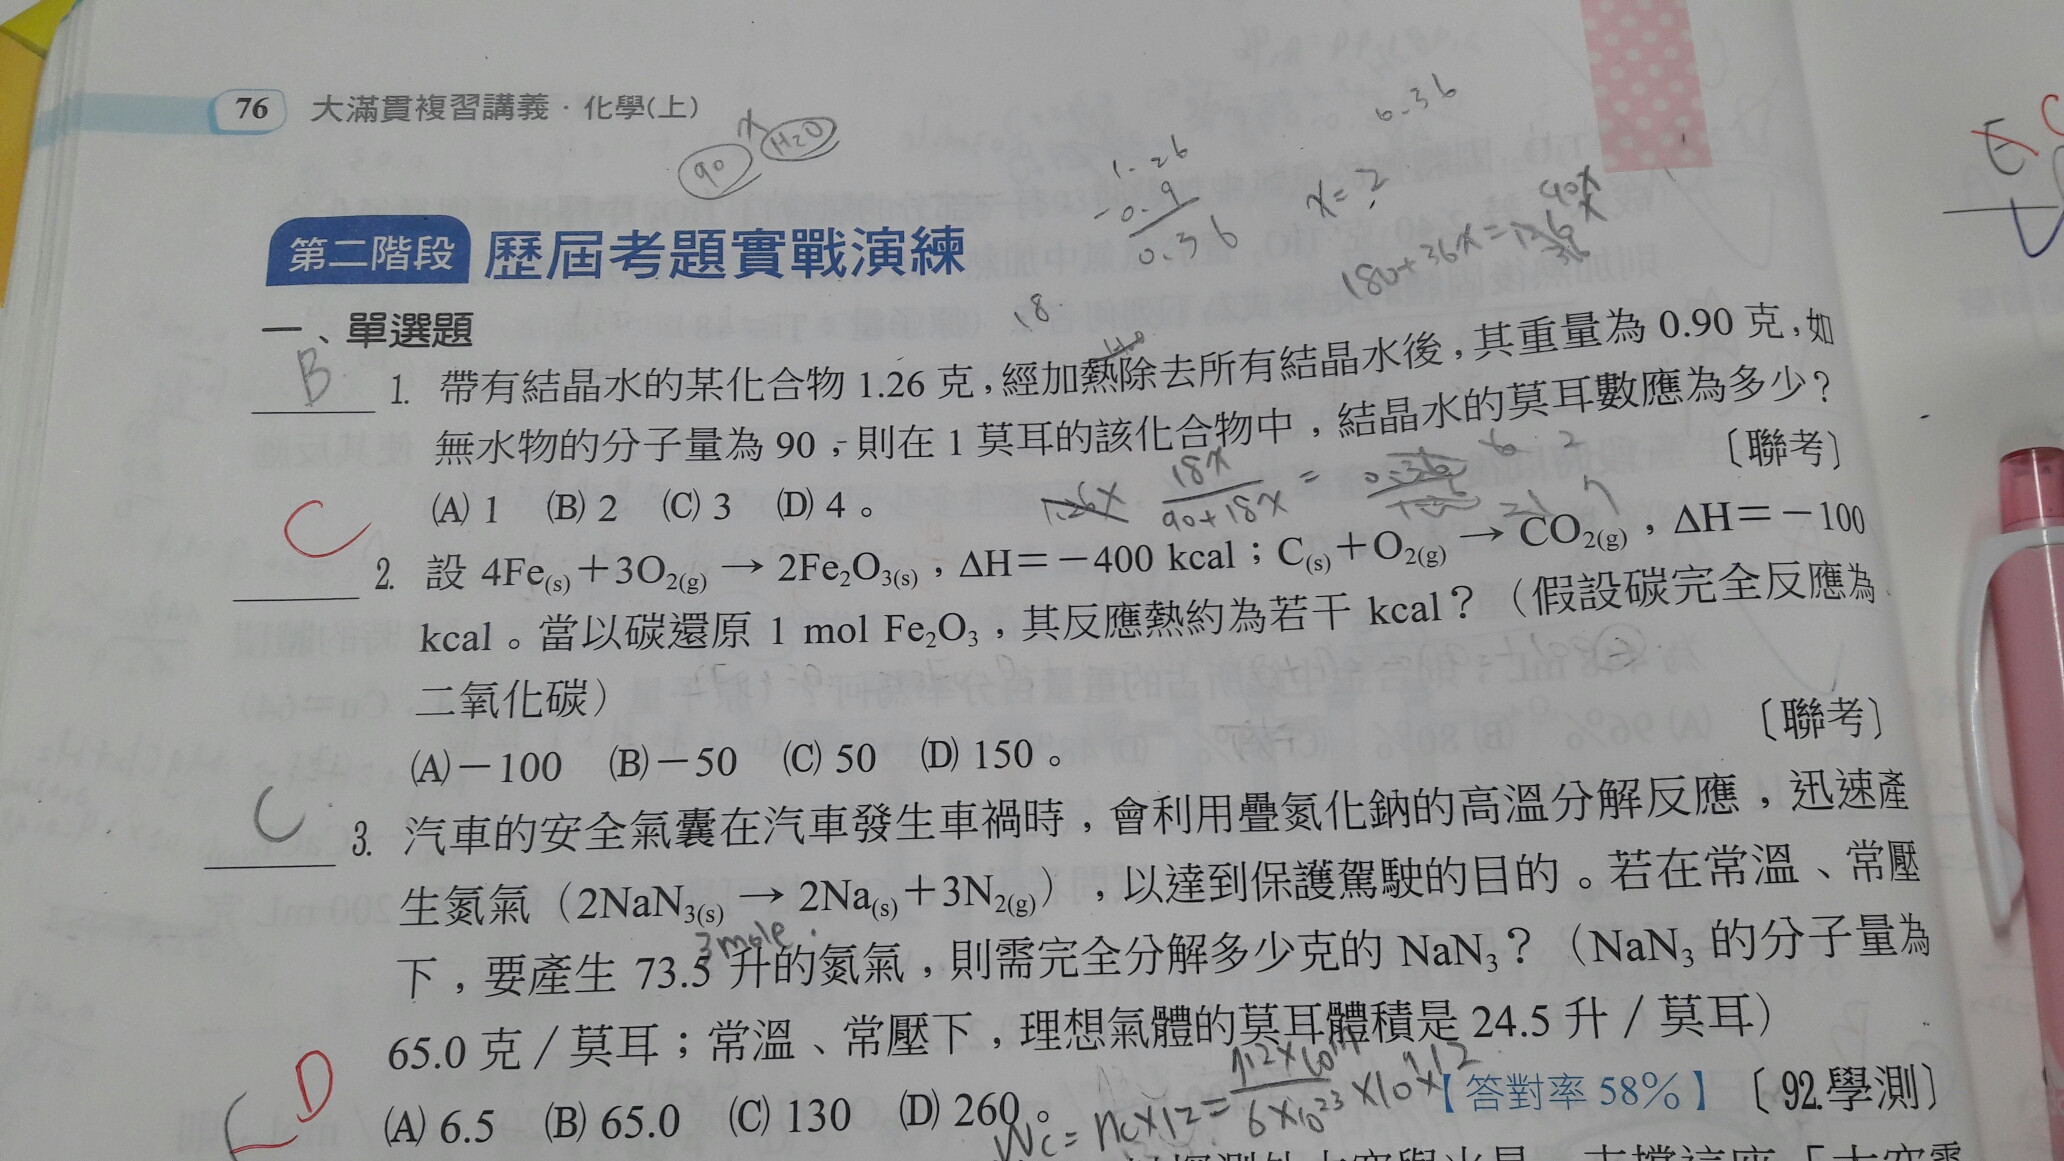 76 大滿貫複習講義·化學(上)
x
90 H₂O
1.26
-0.9
0.36
6.36
x=?
180+36x=
第二階段 歷屆考題實戰演練
一、單選題
18
B 1. 帶有結晶水的某化合物 1.26 克,經加熱除去所有結晶水後,其重量為 0.90 克,如
無水物的分子量為 90,則在 1 莫耳的該化合物中,結晶水的莫耳數應為多少?
〔聯考〕
(A) 1 (B) 2 (C) 3 (D) 4。
1.26x 18x/90+18x =
C 2. 設 4Fe(s)+3O2(g) → 2Fe2O3(s),ΔH=-400 kcal;C(s)+O2(g) → CO2(g),ΔH=-100
kcal。當以碳還原 1 mol Fe2O3,其反應熱約為若干 kcal?(假設碳完全反應為
二氧化碳)
〔聯考〕
(A)-100 (B)-50 (C) 50 (D) 150。
C 3. 汽車的安全氣囊在汽車發生車禍時,會利用疊氮化鈉的高溫分解反應,迅速產
生氮氣(2NaN3(s) → 2Na(s)+3N2(g)),以達到保護駕駛的目的。若在常溫、常壓
3 mole
下,要產生 73.5 升的氮氣,則需完全分解多少克的 NaN3?(NaN3 的分子量為
65.0 克/莫耳;常溫、常壓下,理想氣體的莫耳體積是 24.5 升/莫耳)
(A) 6.5 (B) 65.0 (C) 130 (D) 260。
【答對率 58%】〔92.學測〕
D